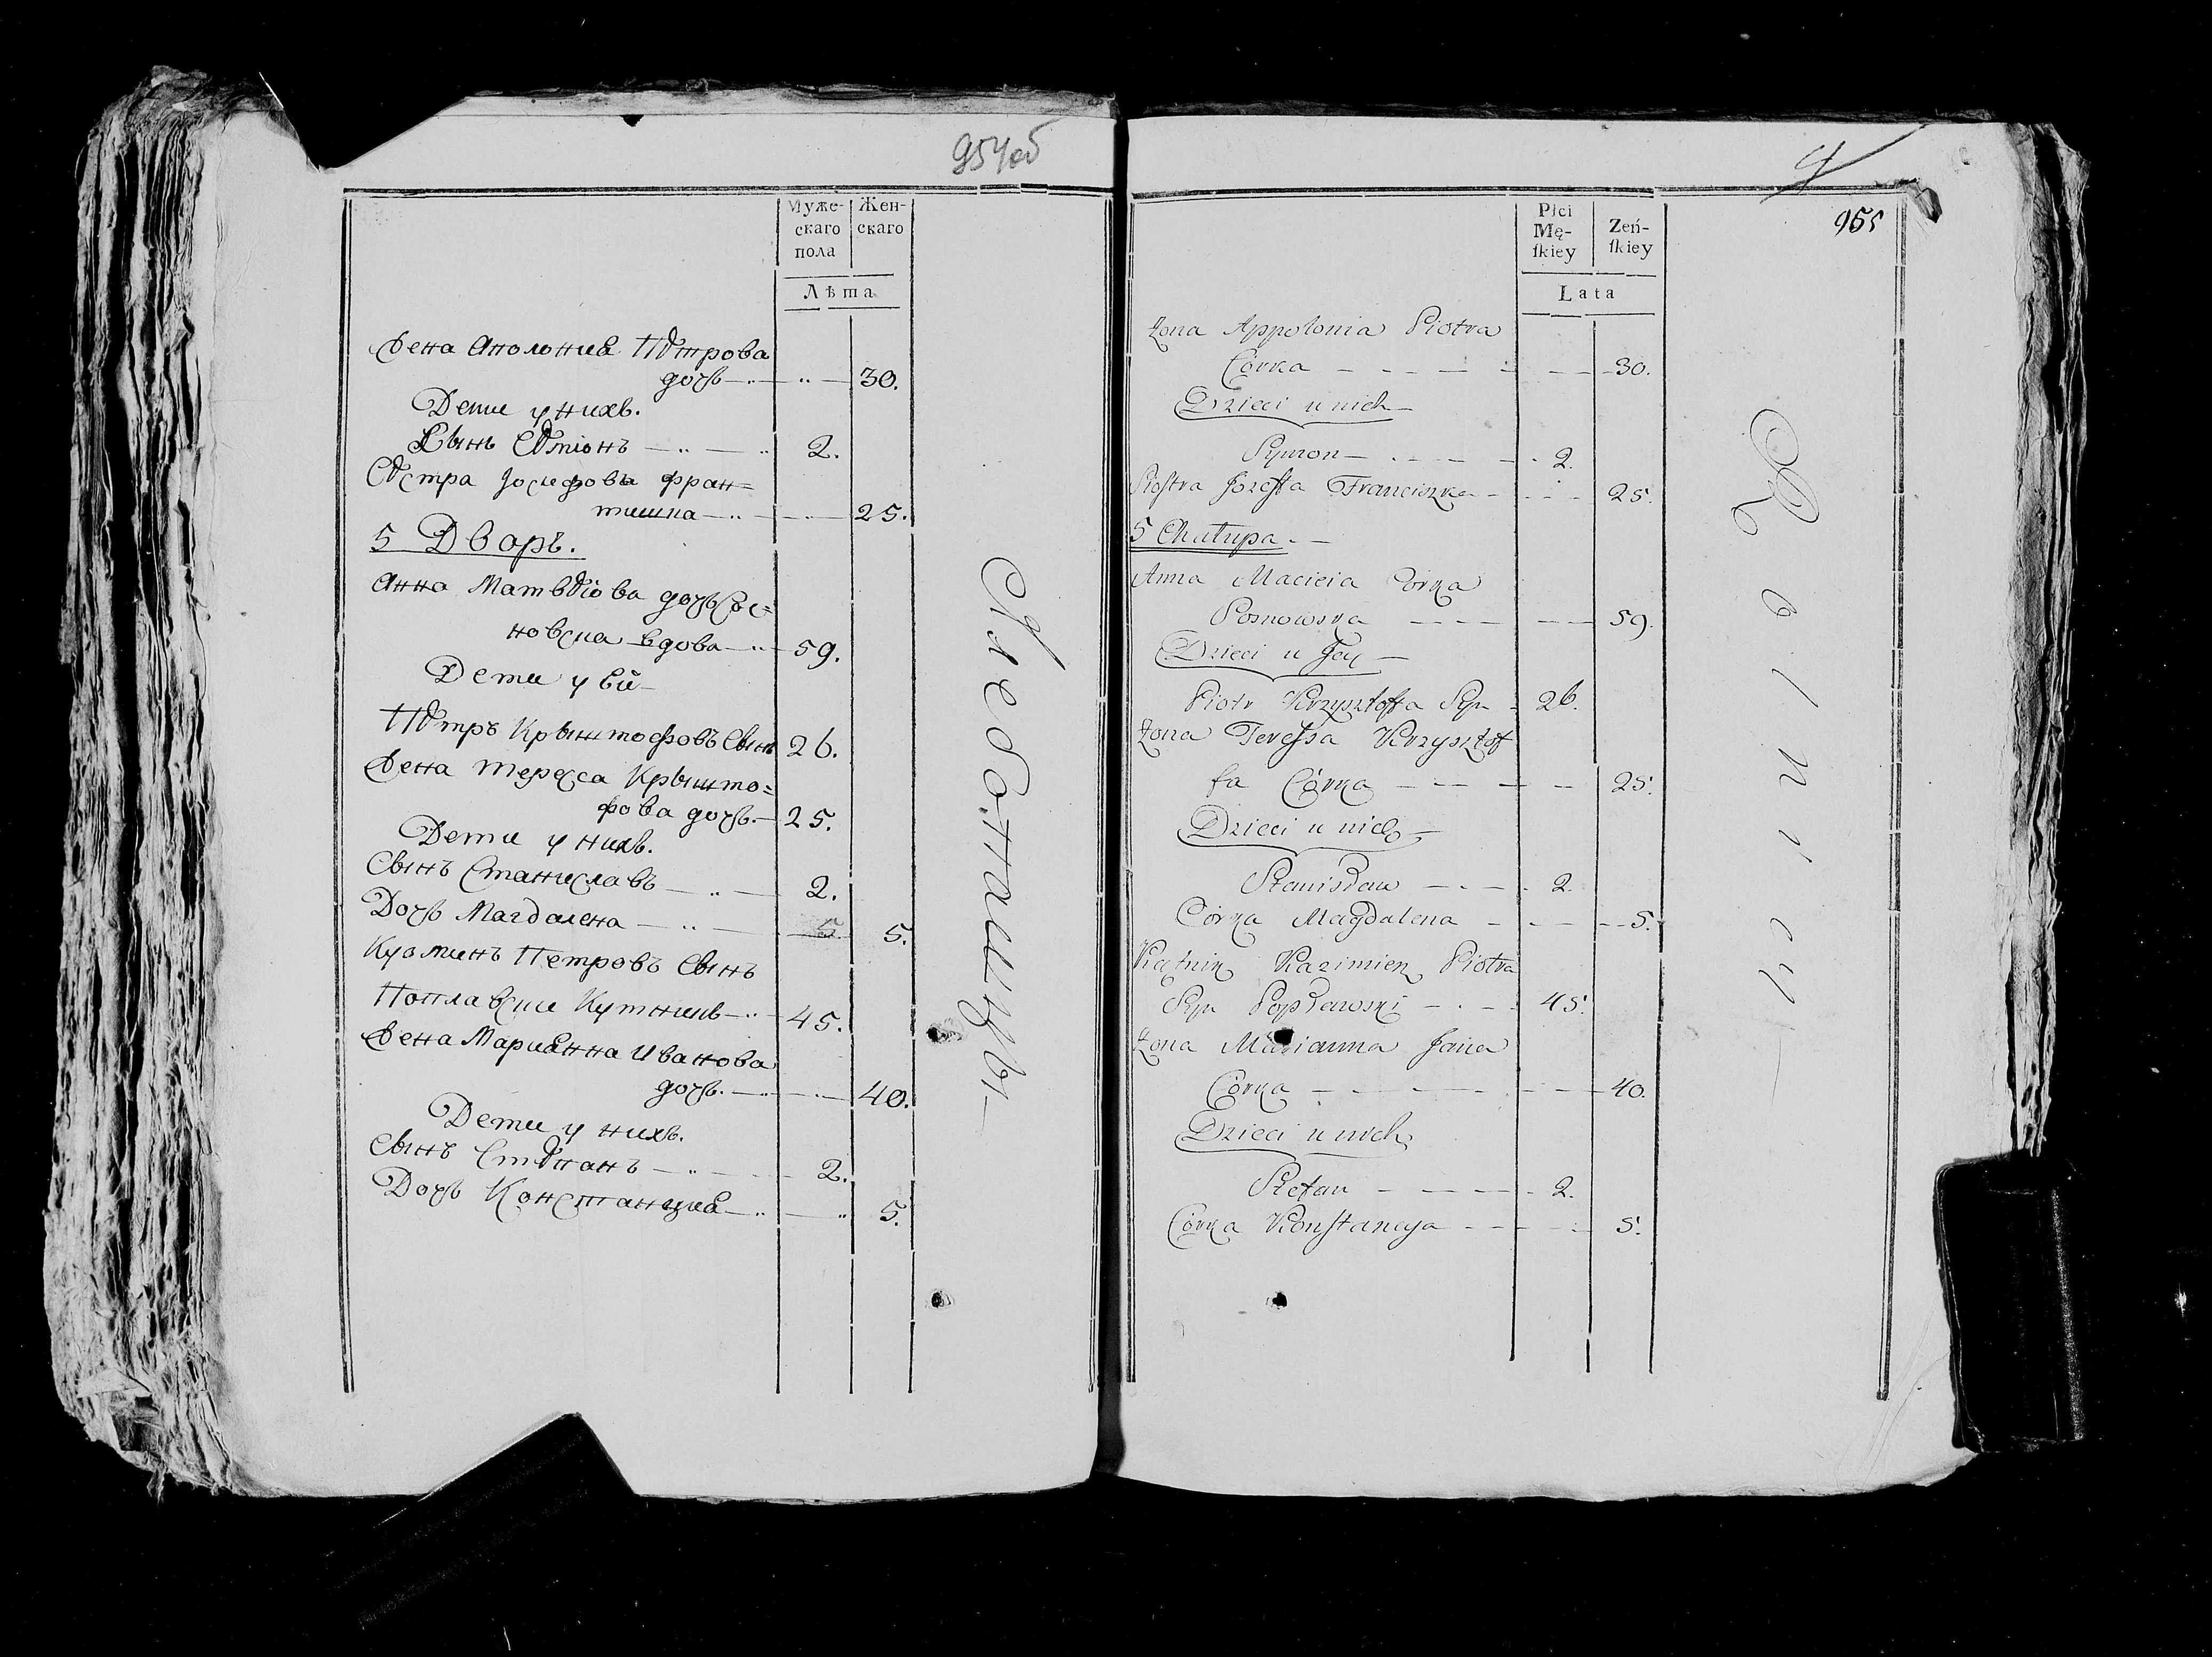 954об
Муже-
скаго
пола
Жен-
скаго
Лѣта
Жена Аполония Пѣтрова
дочь 30.
Дети у нихъ.
Сынъ Сѣмiонъ 2.
Сѣстра Иосифова Фран=
тишка 25.
5 Дворъ.
Анна Матвѣiова дочь Сос=
новска вдова 59.
Дети у ѣй
Пѣтръ Крыштофовъ Сынъ 26.
Жена Тересса Крышто=
фова дочь. 25.
Дети у нихъ.
Сынъ Станиславъ 2.
Дочь Магдалена 5. 5.
Петровъ Сынъ
Поплавски Кутникъ 45.
Жена Марианна Иванова
дочь. 40.
Дети у нихъ.
Сынъ Стѣпанъ 2.
Дочь Констанция 5.
Хлебопашцы
4
955
Płci
Mę-
ſkiey
Zeń-
ſkiey
Lata
Żona Appolonia Piotra
Córka 30.
Dzieci u nich
Symon 2.
Siostra Józeffa Franciszka 25.
5 Chałupa.
Anna Macieia Córka
Sosnowska 59.
Dzieci u Jey
Piotr Krzysztoffa Syn 26.
Żona Teressa Krzysztof
fa Córka 25.
Dzieci u nich
Stanisław 2.
Córka Magdalena 5.
Kątnik Kazimierz Piotra
Syn Popławski 45.
Żona Marianna Jana
Córka 40.
Dzieci u nich
Stefan 2.
Córka Konstancya 5.
Rolnicy